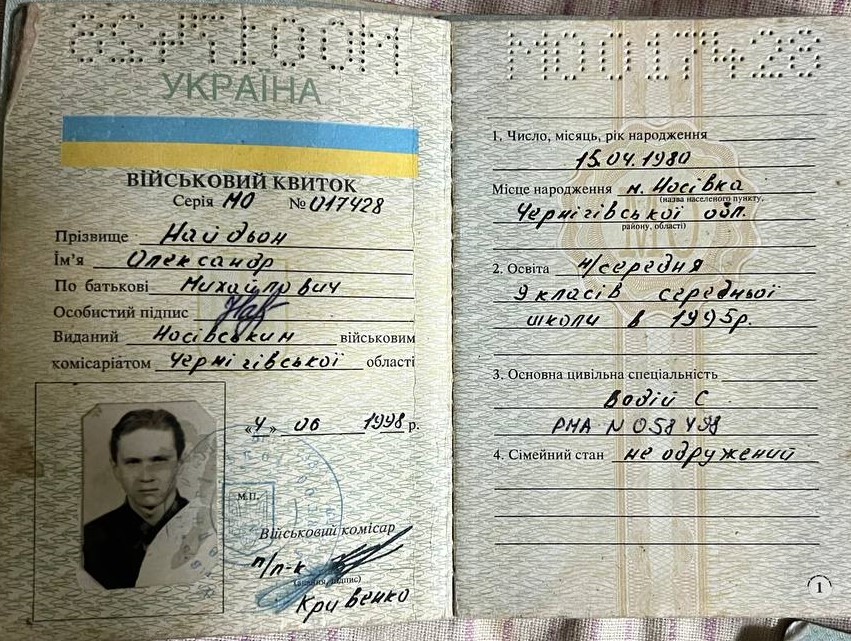 МО 017428
УКРАЇНА
ВІЙСЬКОВИЙ КВИТОК
Серія МО № 017428
Прізвище Найдьон
Ім'я Олександр
По батькові Михайлович
Особистий підпис
Виданий Носівським військовим
комісаріатом Чернігівської області
«4» 06 1998 р.
М.П.
Військовий комісар
п/п-к
(звання, підпис)
Кривенко
МО 017428
1. Число, місяць, рік народження
15.04.1980
Місце народження м. Носівка
(назва населеного пункту,
Чернігівської обл.
району, області)
2. Освіта н/середня
9 класів середньої
школи в 1995р.
3. Основна цивільна спеціальність
Водій С
РМА N 058498
4. Сімейний стан не одружений
1